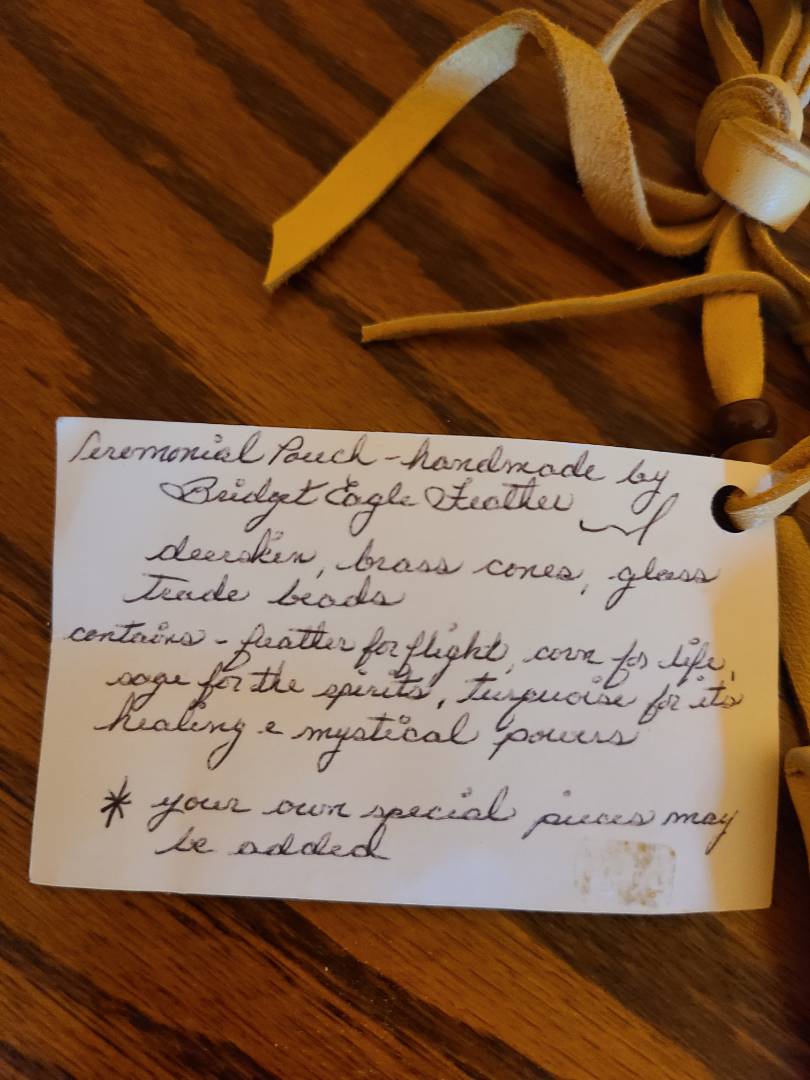 Ceremonial Pouch - handmade by
Bridget Eagle Feather
deerskin, brass cones, glass
trade beads
contains - feather for flight, corn for life,
sage for the spirits, turquoise for its
healing & mystical powers
* your own special pieces may
be added